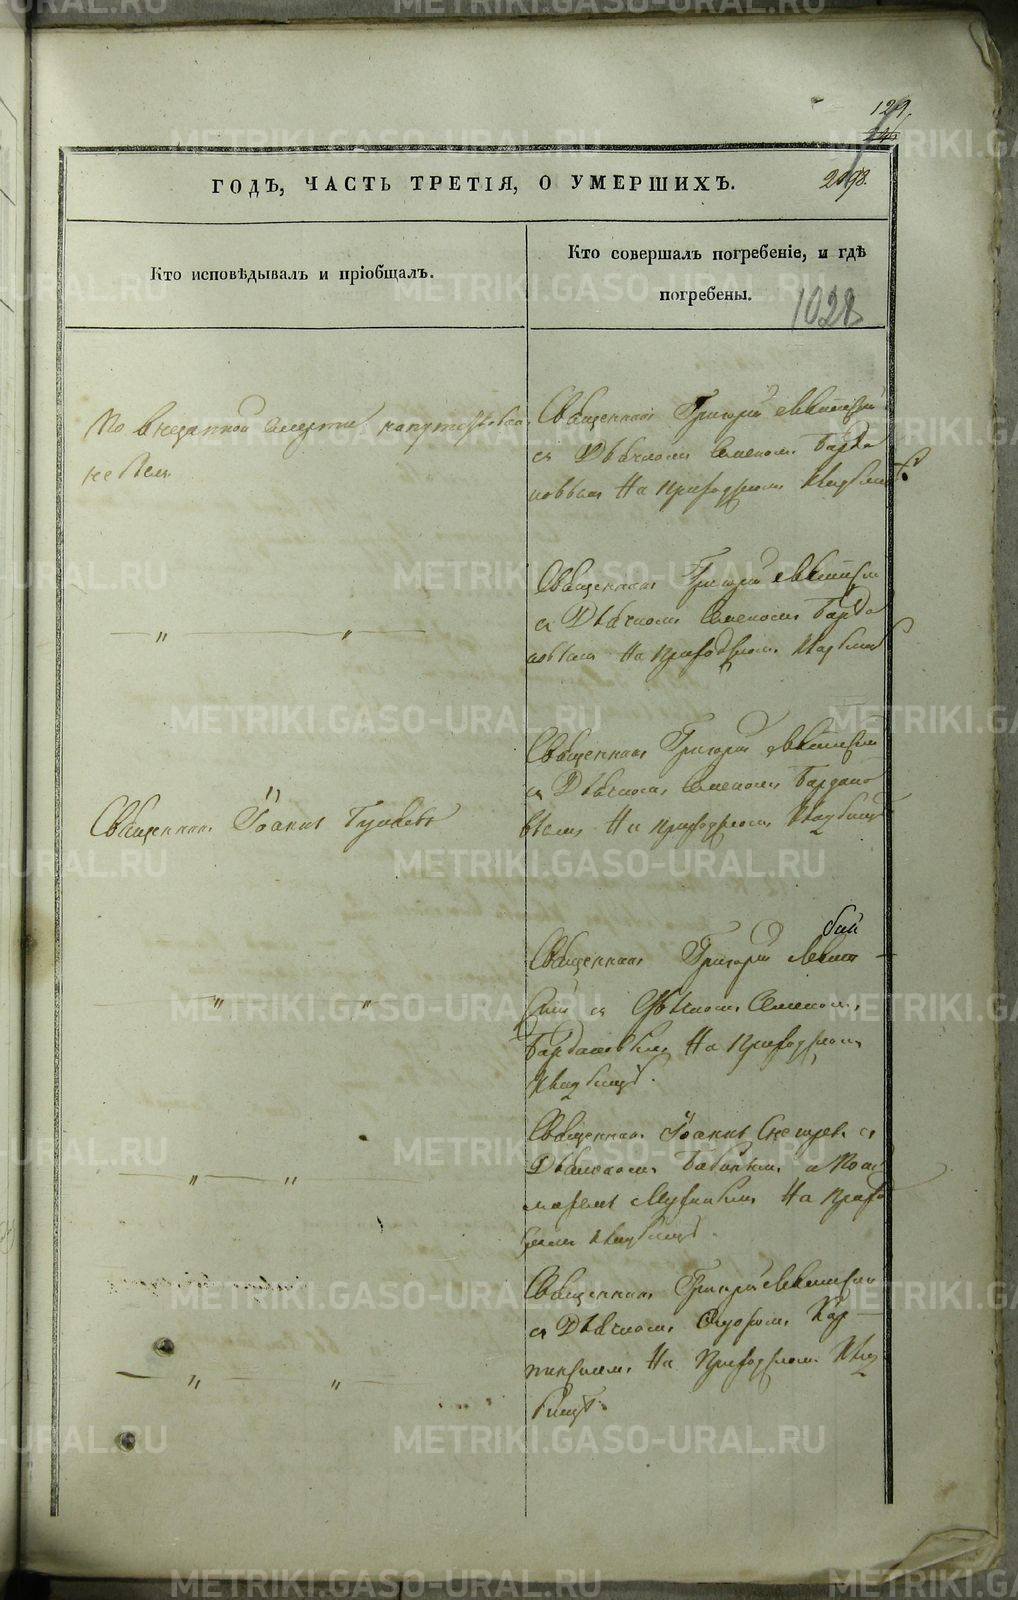 129.
2098.
ГОДЪ, ЧАСТЬ ТРЕТІЯ, О УМЕРШИХЪ.
Кто исповѣдывалъ и пріобщалъ.
Кто совершалъ погребеніе, и гдѣ
погребены.
1028
По внезапной смерти напутствован
не былъ
Священникъ Григорій Левитскій
съ Дьячкомъ Семеномъ Барда
новымъ На приходскомъ Кладбищѣ
Священникъ Григорій Левитскій
съ Дьячкомъ Семеномъ Барда
новымъ На приходскомъ Кладбищѣ
Священникъ Іоаннъ
Священникъ Григорій Левитскій
съ Дьячкомъ Семеномъ Бардано
вымъ На приходскомъ Кладбищѣ
Священникъ Григорій Левит
скій съ Дьячкомъ Семеномъ
Бардановымъ На приходскомъ
Кладбищѣ.
Священникъ Іоаннъ съ
Дьячкомъ и Поно
маремъ На прихо
скомъ Кладбищѣ.
Священникъ Григорій Левитскій
съ Дьячкомъ Кар
пинскимъ На Приходскомъ Клад
бищѣ.
METRIKI.GASO-URAL.RU